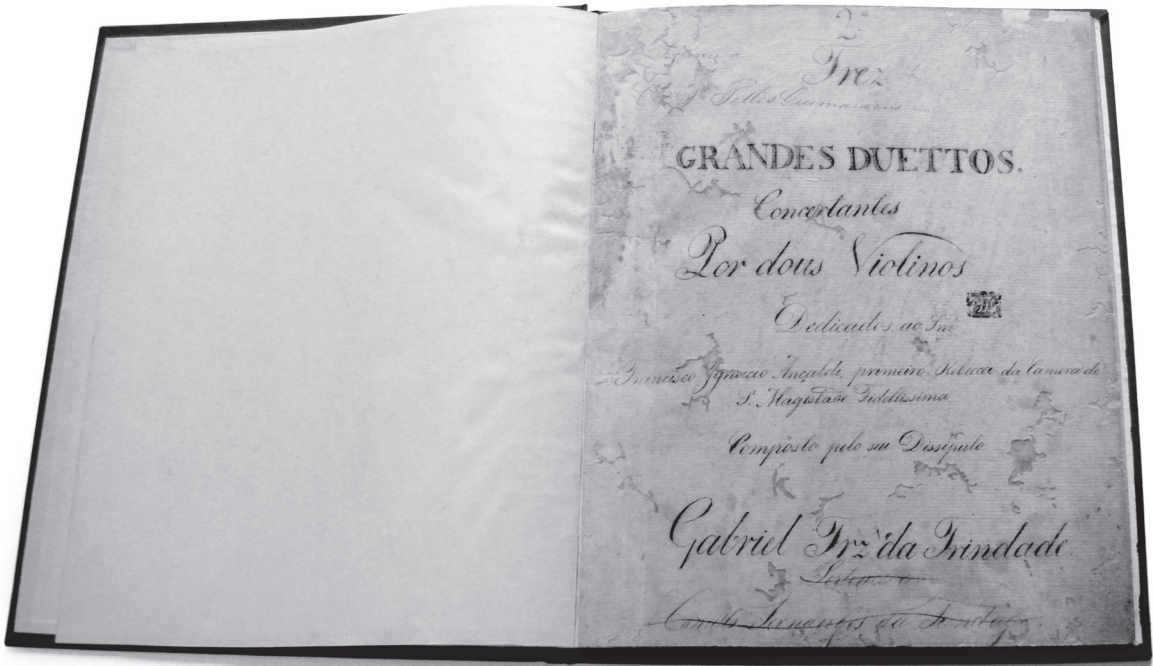 2º
Trez
Telles Guimaraens
GRANDES DUETTOS.
Concertantes
Por dous Violinos
Dedicados ao Snr
Francisco Ignacio Ançaldi, primeiro Rebecca da Camera de
S. Magistade Fidelissima
Composto pelo seu Dissipulo
Gabriel Frz' da Trindade.